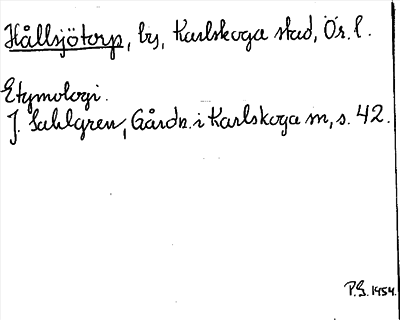 Hållsjötorp, by, Karlskoga stad, Ör. l.
Etymologi.
J. Sahlgren, Gårdn. i Karlskoga m, s. 42.
P.G. 1954.